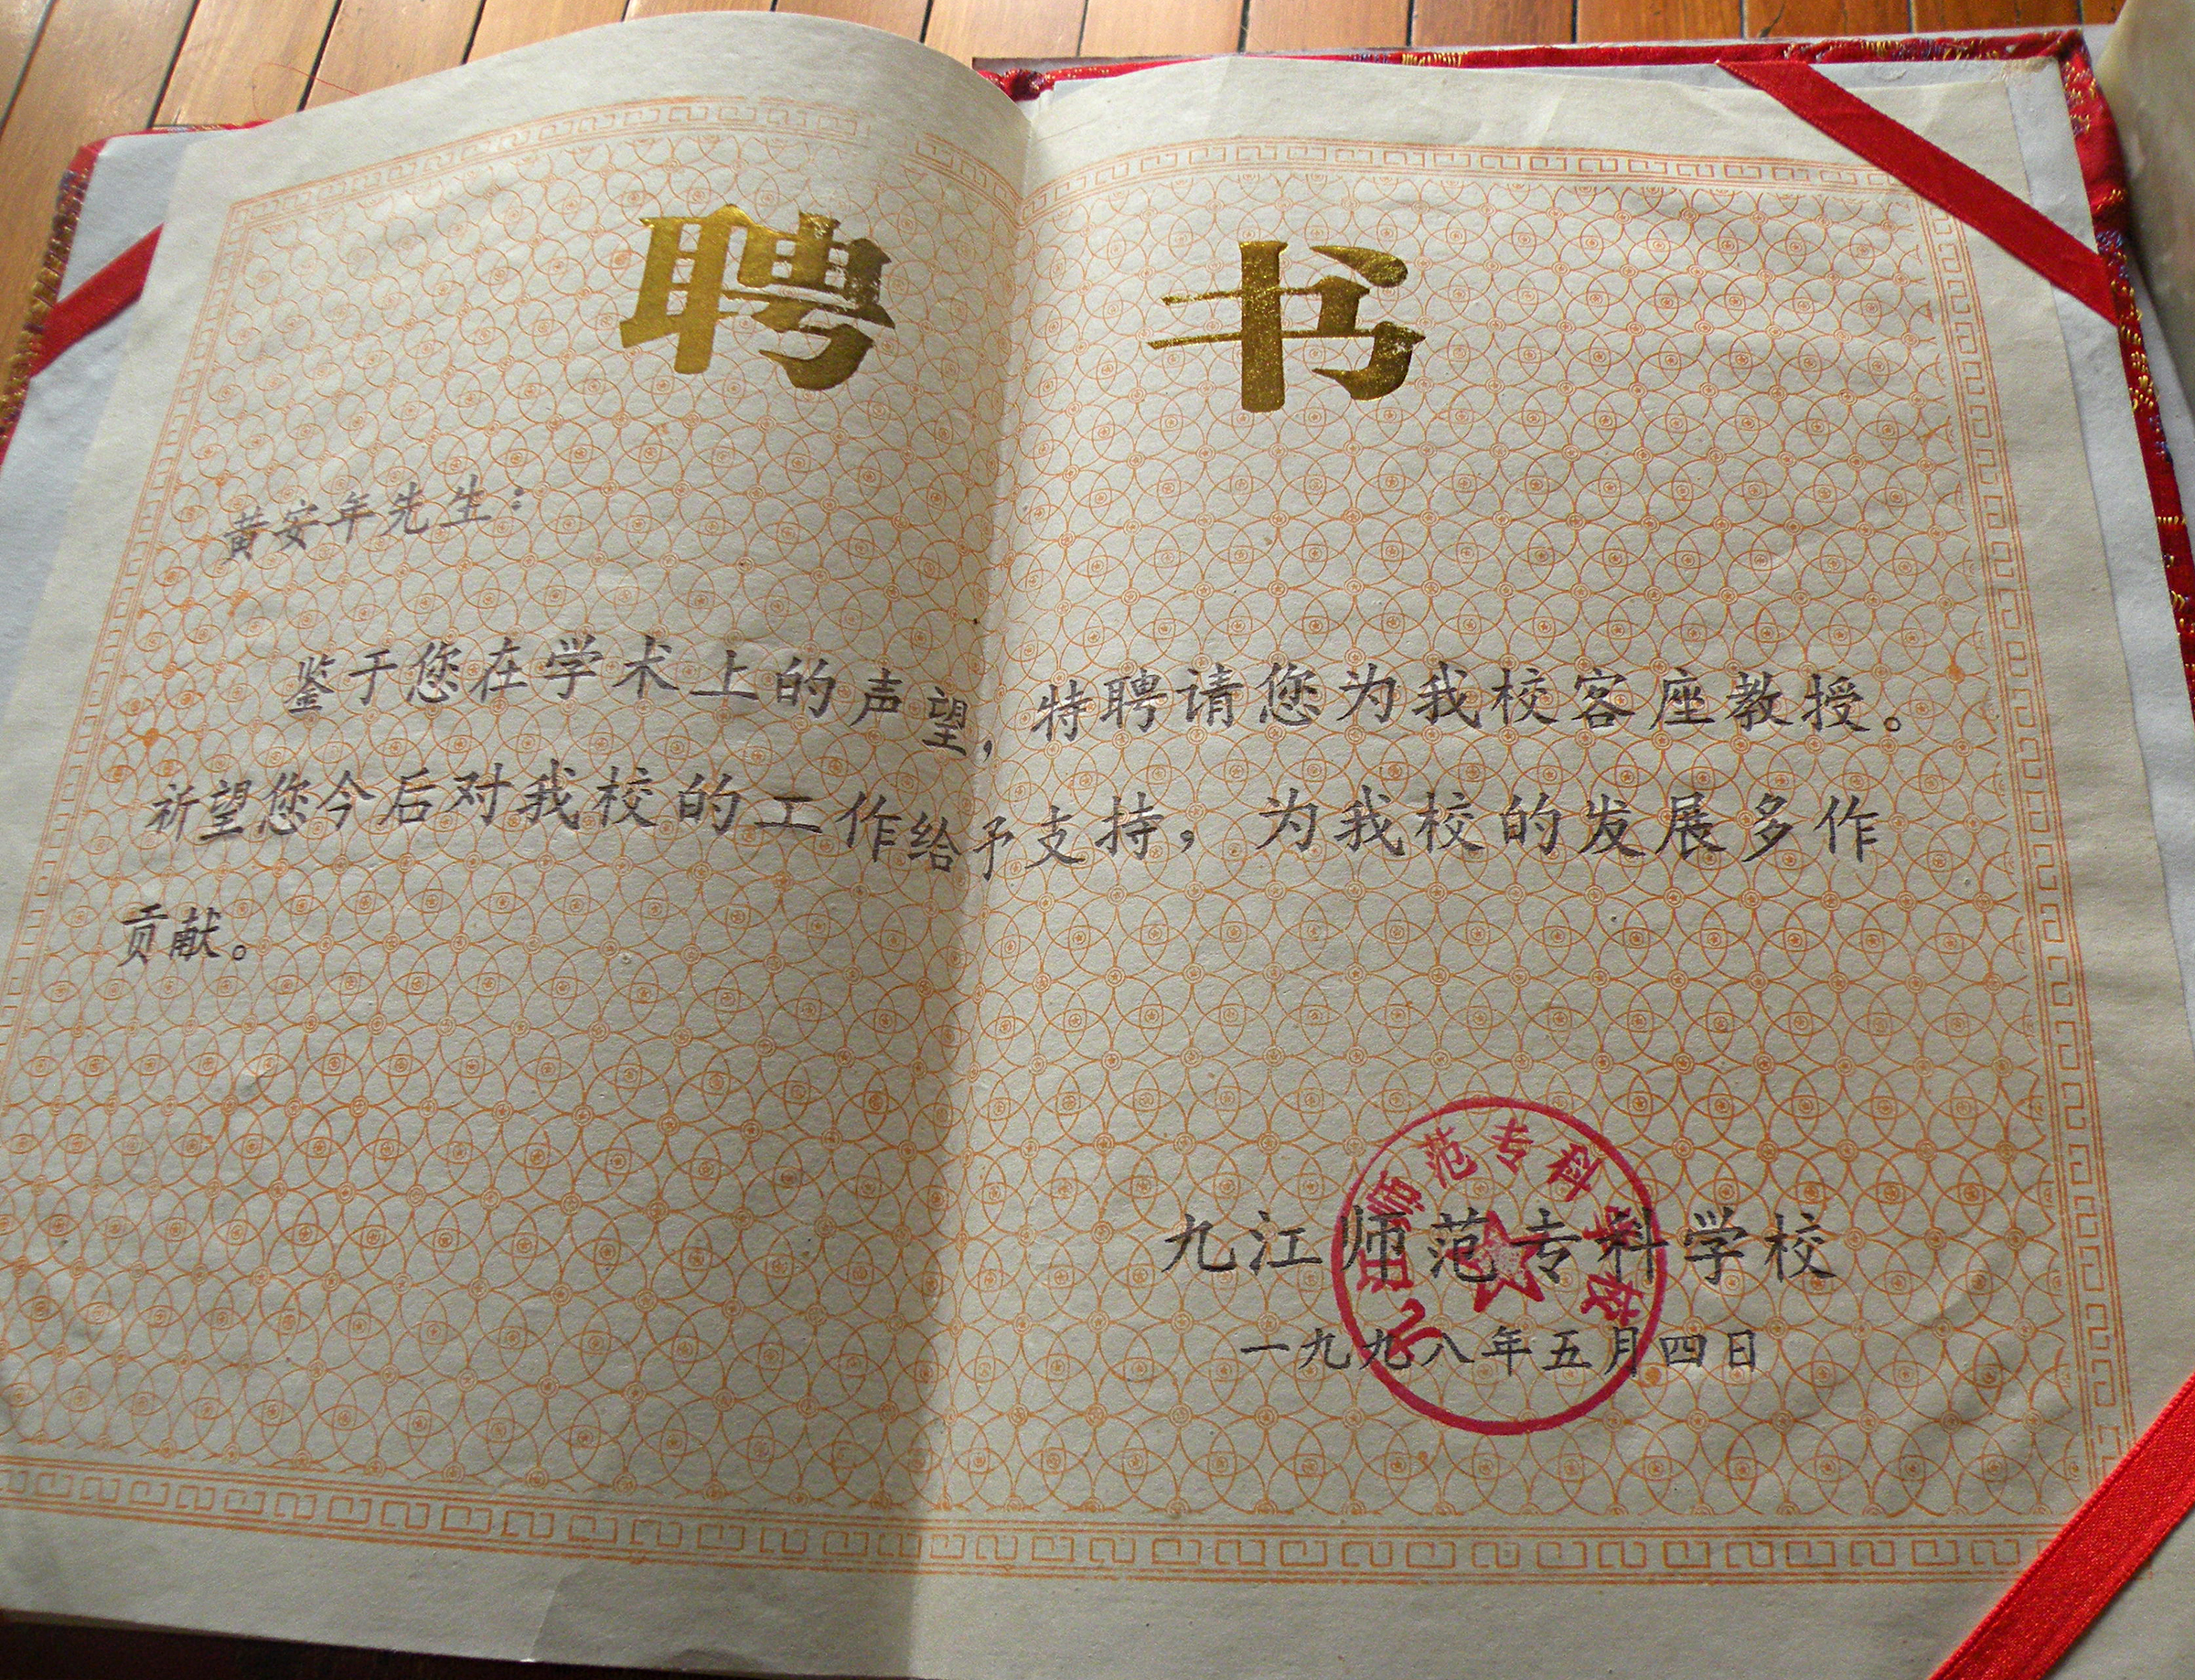 聘书
黄安年先生：
鉴于您在学术上的声望，特聘请您为我校客座教授。
祈望您今后对我校的工作给予支持，为我校的发展多作
贡献。
九江师范专科学校
一九九八年五月四日
九江师范专科学校